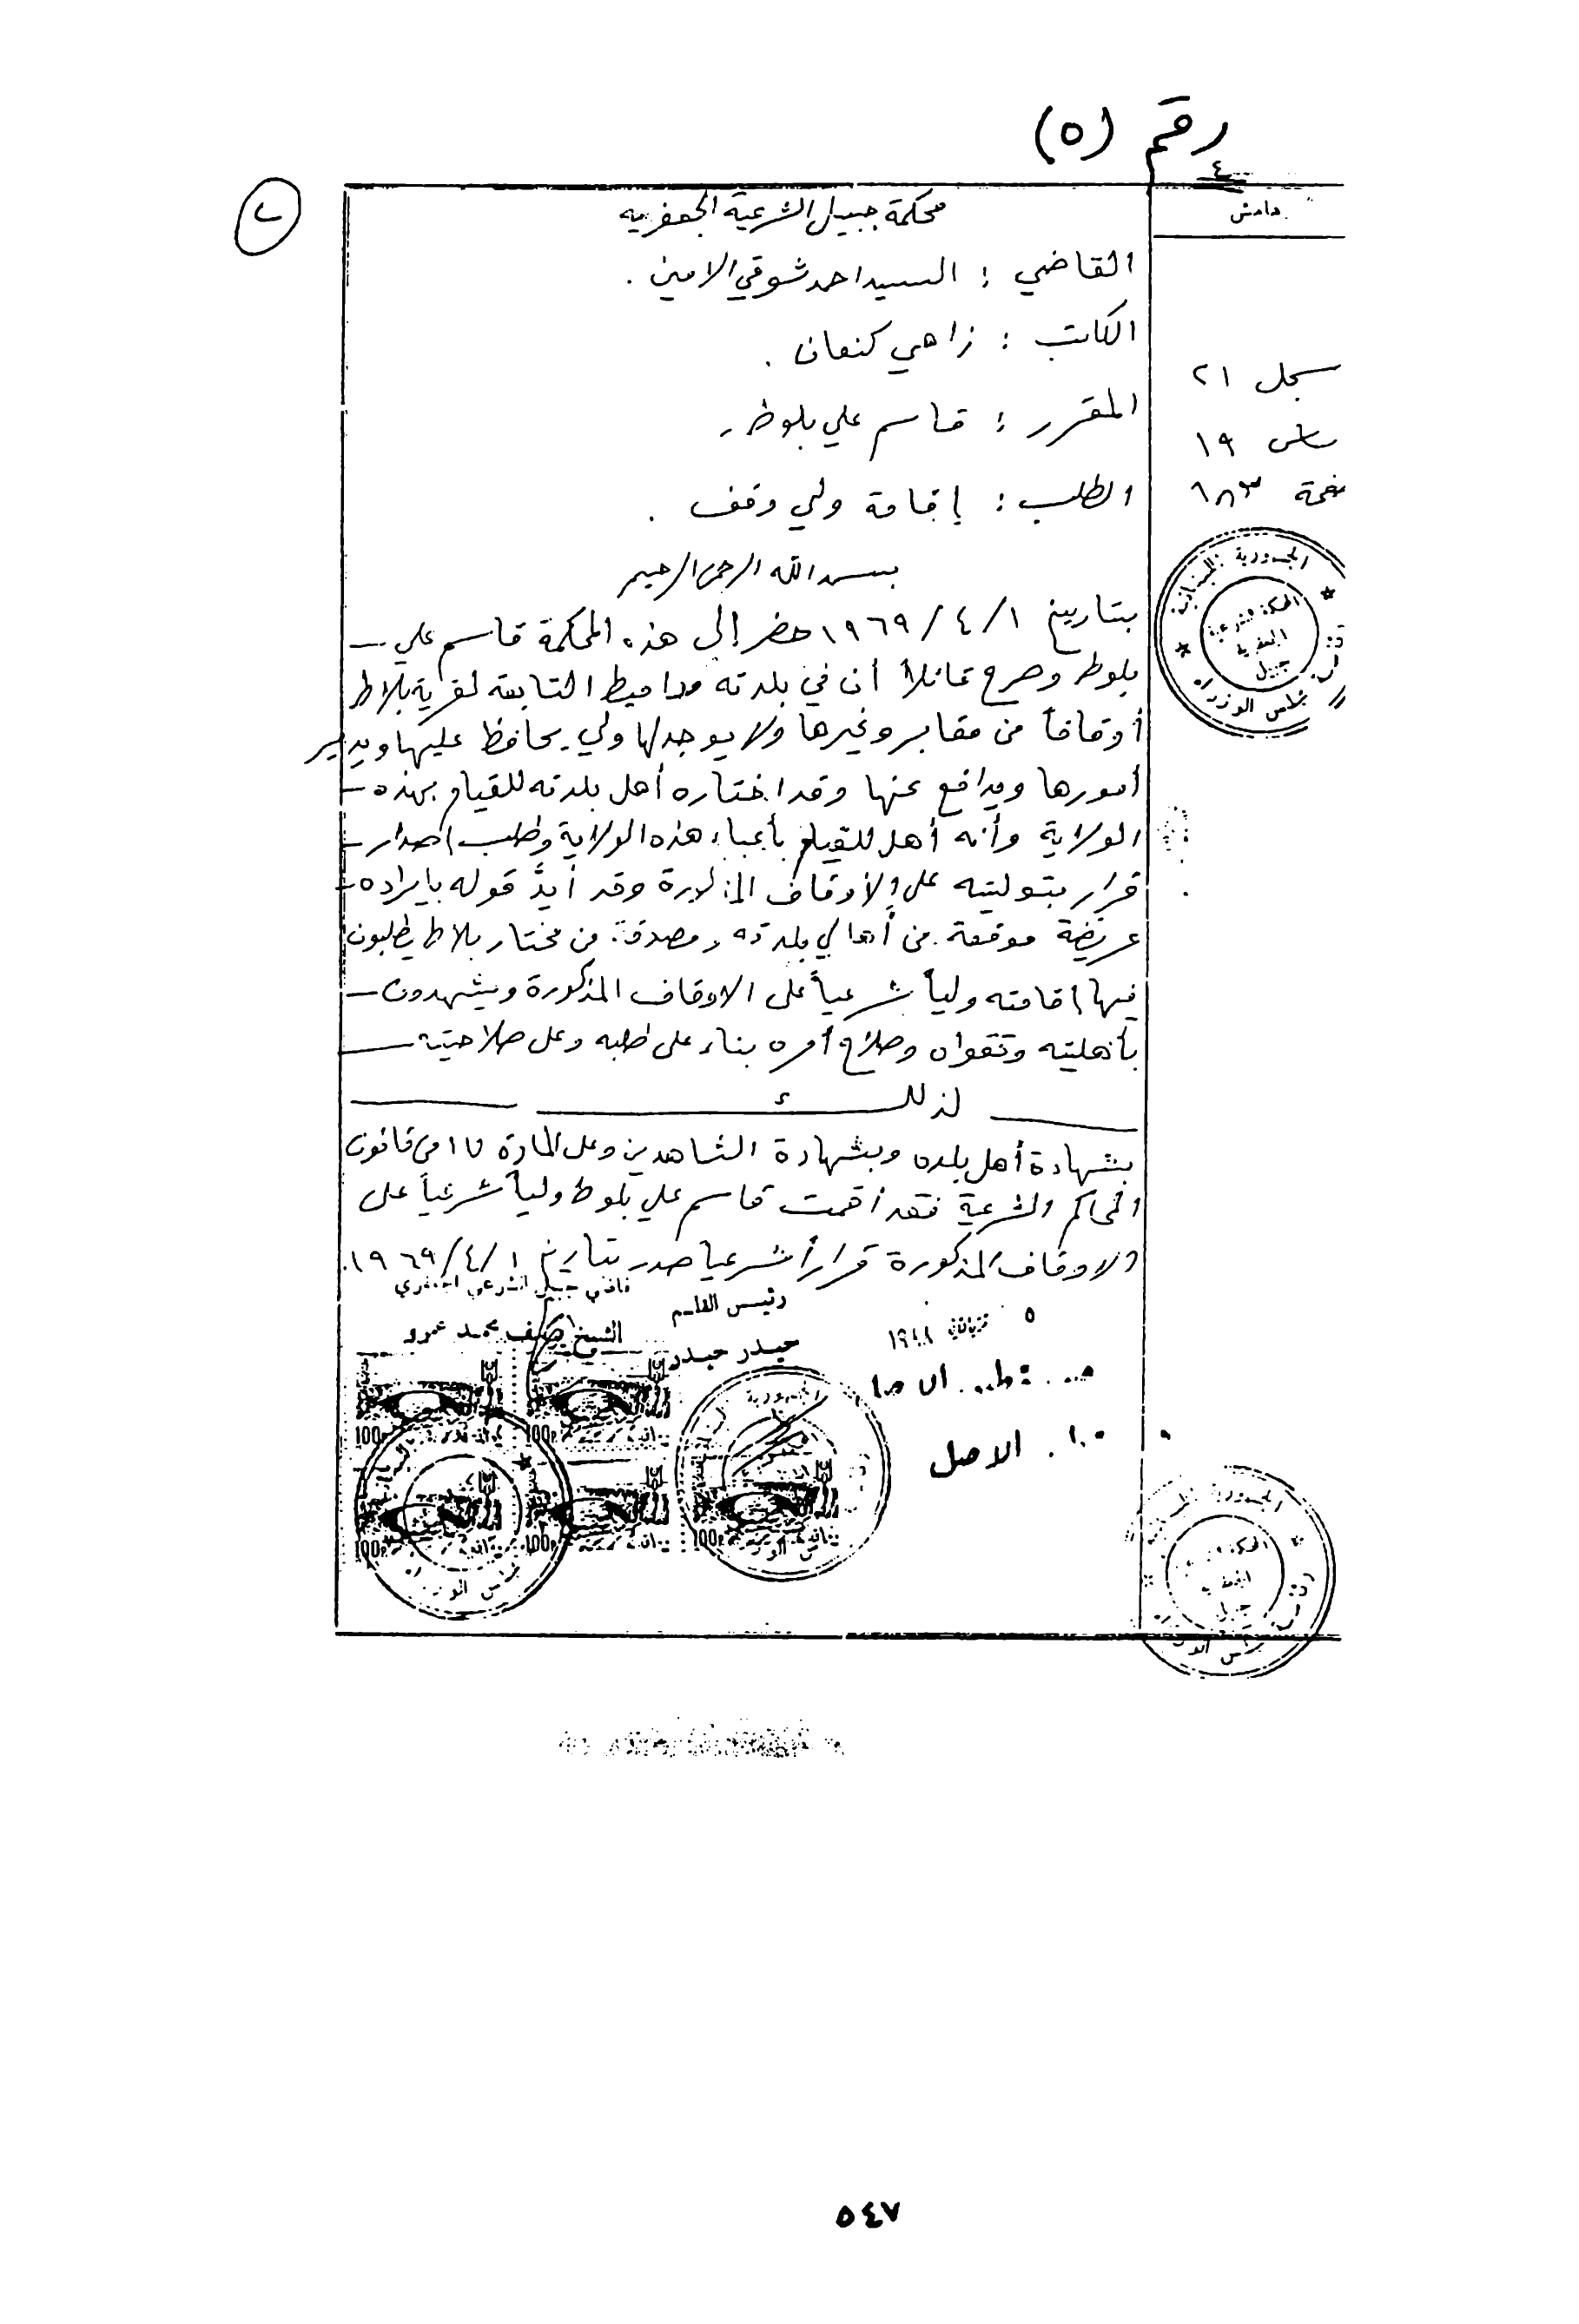 رقم (٥)
٤
هامش
محكمة جبيل الشرعية الجعفرية
القاضي : السيد احمد شوقي الامين .
الكاتب : زاهي كنعان .
سجل ٢١
المقرر : قاسم علي بلوط
١٩
الطلب : إقامة ولي وقف .
١٨٣
بسم الله الرحمن الرحيم
بتاريخ ١/٤/١٩٦٩ حضر إلى هذه المحكمة قاسم علي
بلوط وصرح قائلاً أن في بلدته التابعة لقرية بلاط
أوقافاً من مقابر وغيرها ولا يوجد لها ولي يحافظ عليها ويدير
أمورها ويدافع عنها وقد اختاره أهل بلدته للقيام بهذه
الولاية وأنه أهل للقيام بأعباء هذه الولاية وطلب إصدار
قرار بتوليته على الأوقاف المذكورة وقد أيدَّ قوله بإيراده
عريضة موقعة من أهالي بلدته ومصدقة من مختار بلاط يطلبون
فيها إقامته ولياً شرعياً على الاوقاف المذكورة ويشهدون
بأهليته وتقواه وصلاح أمره بناء على طلبه وعلى صلاحيته
لذلك
بشهادة أهل بلده وبشهادة الشاهدين وعلى المادة ١٧ من قانون
المحاكم الشرعية فقد أقمت قاسم علي بلوط ولياً شرعياً على
الاوقاف المذكورة قراراً شرعيا صدر بتاريخ ١/٤/١٩٦٩.
قاضي جبيل الشرعي الجعفري
رئيس القلم
الشيخ محمد عمرو
حيدر حيدر
٥
الاصل
الجمهورية اللبنانية
المحكمة الشرعية
الجعفرية
جبيل
مجلس الوزراء
100P
100P
100P
100P
100P
٥٤٧